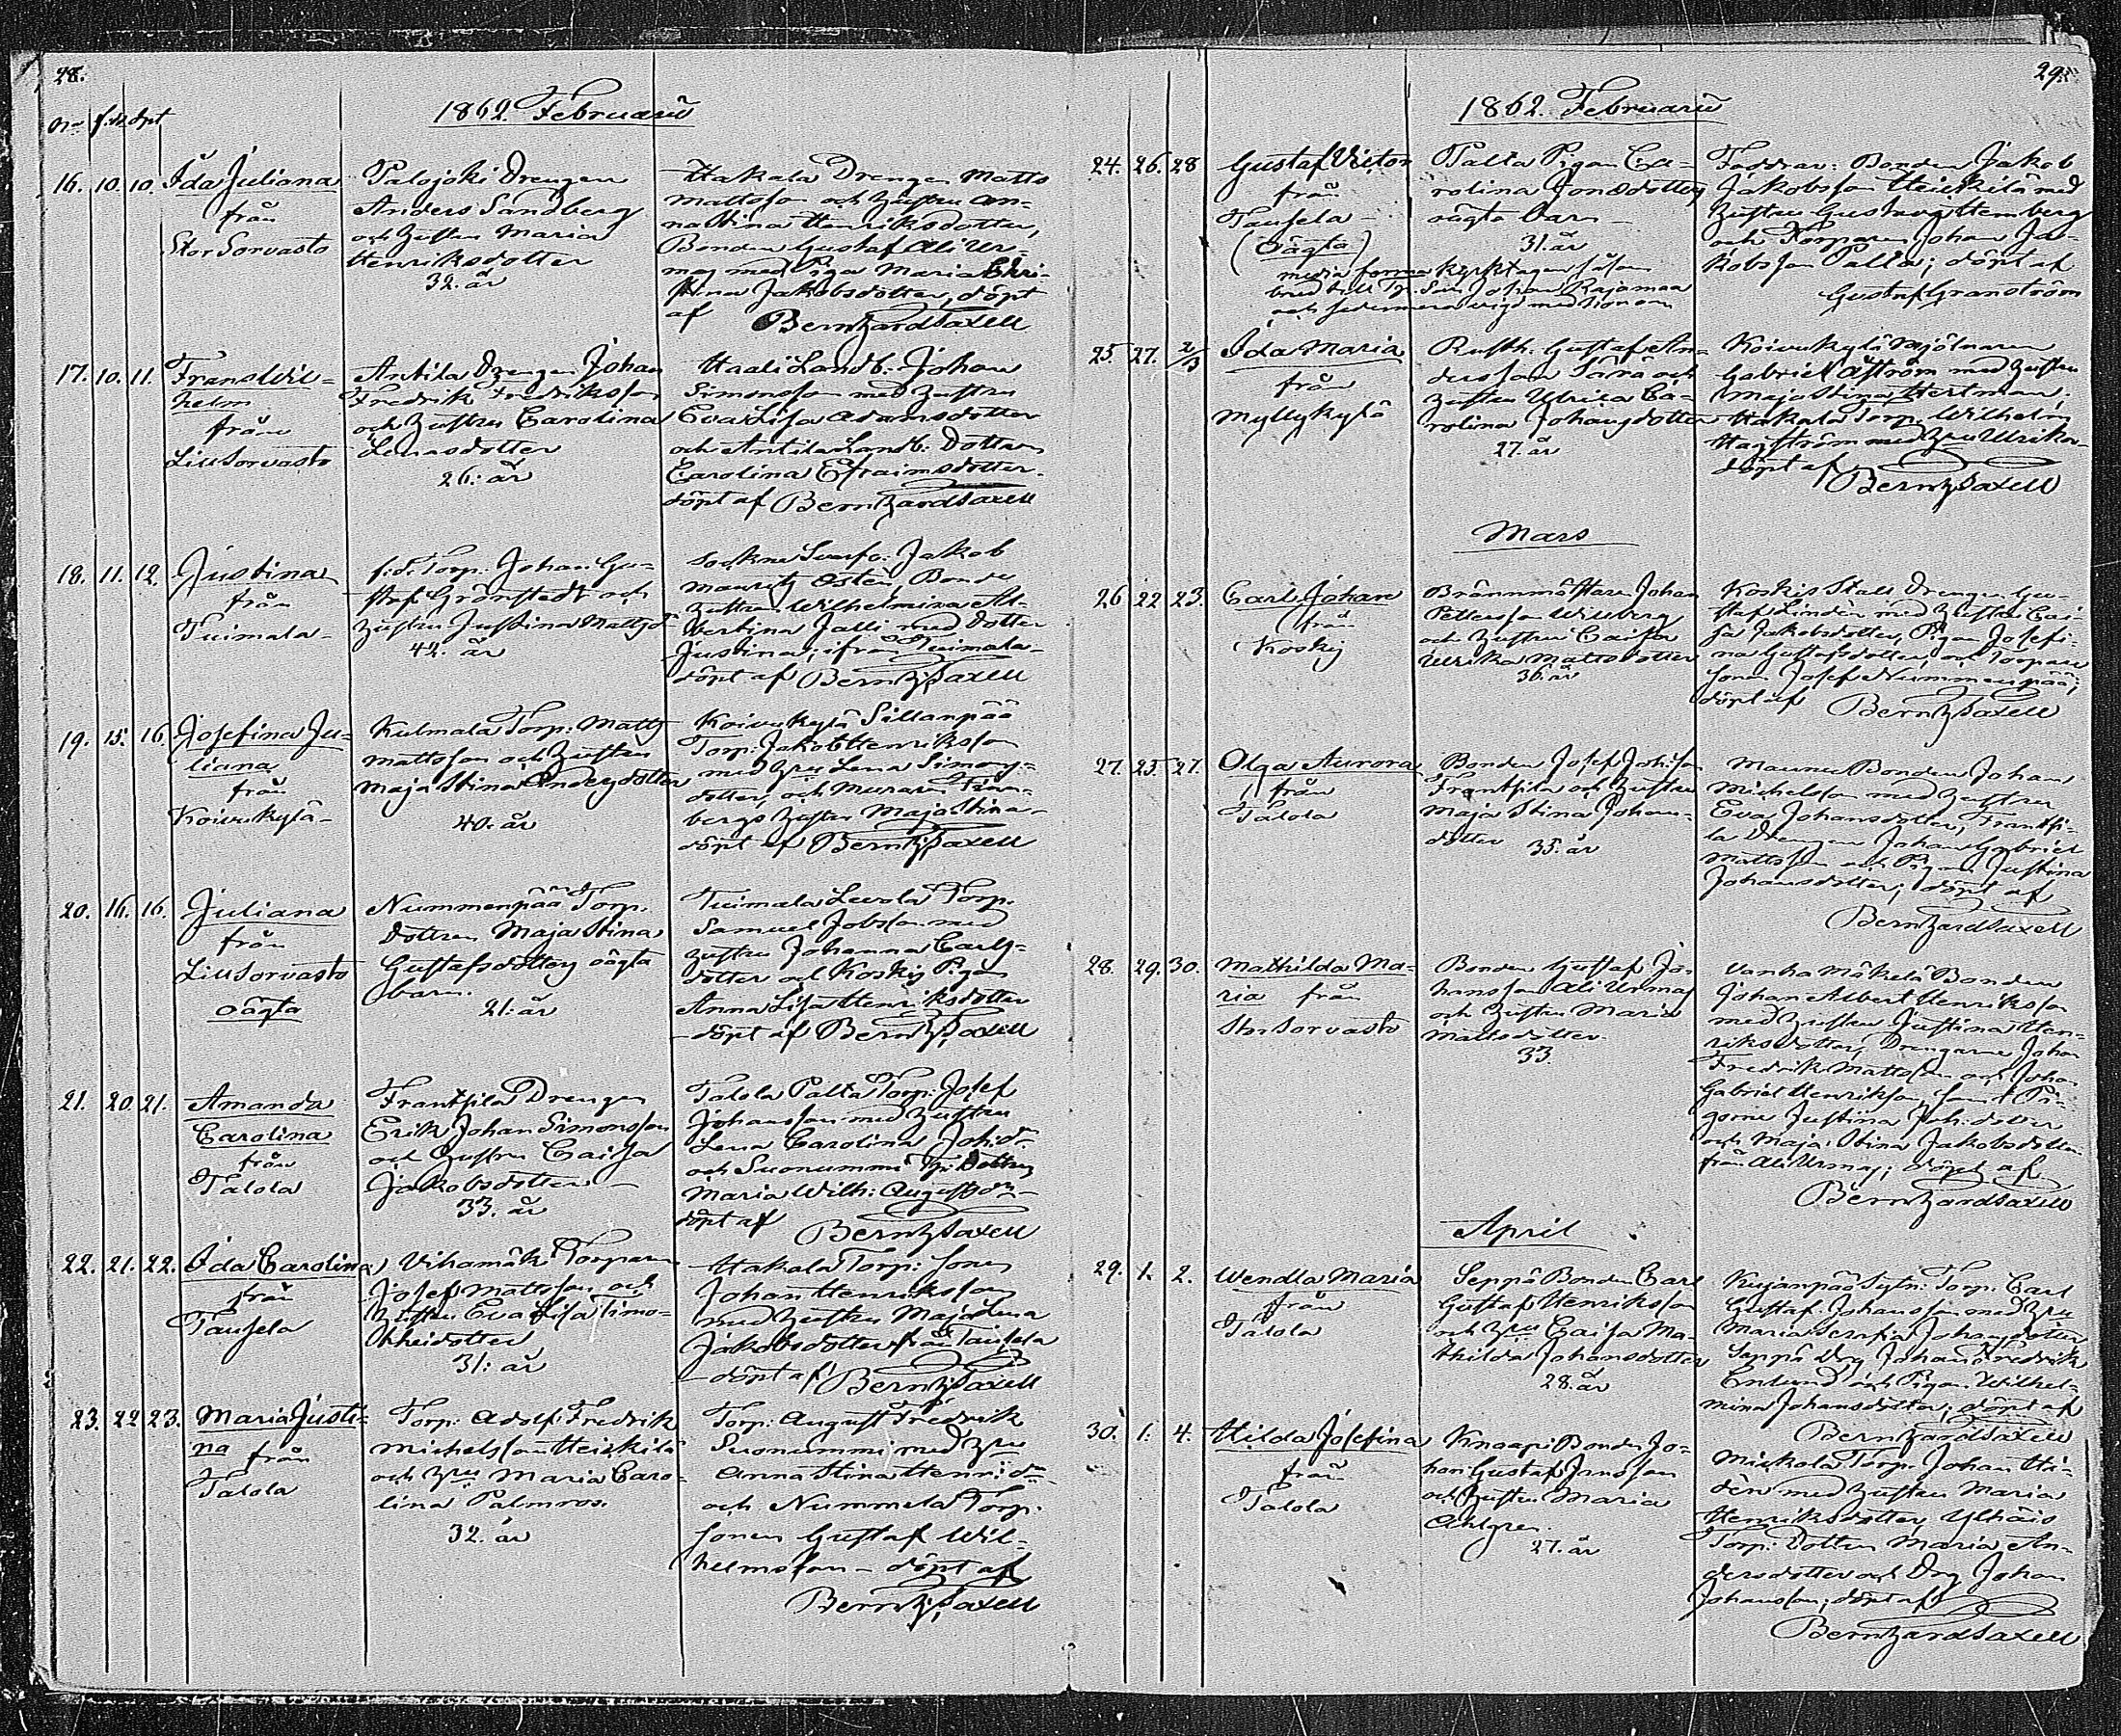 28.
No f. d. dpt
1862. Februarii
16. 10. 10. Ida Juliana
från
Stor Sorvasto
Palojoki Drengen
Anders Sandberg
och Hustru Maria
Henriksdotter
32. år
Hakala Drengen Matts
Mattsson och Hustru An-
na Stina Henriksdotter,
Bonden Gustaf Ali Ur-
maj med Piga Maria Chri-
stina Jakobsdotter, döpt
af Berntz ard Saxell
17. 10. 11. Frans Wil-
helm
från
Liusorvasto
Antila Drengen Johan
Fredrik Fredriksson
och Hustru Carolina
Lenasdotter
26: år
Haali Landb: Johan
Simonsson med Hustru
Eva Lisa Adamsdotter
och Antila Landb: Dottren
Carolina Efraimsdotter
döpt af Berntz ard Saxell
18. 11. 12. Justina
från
Tuimala
f: d: Torp: Johan Gu-
staf Grönstedt och
Hustru Justina Mattsd:r
42. år
Sockne Jakob
Mauritz Öster, Bonde
Hustru Wilhelmina Al-
bertina Jalli med Dotter
Justina; ifrån Tuimala
döpt af Berntz Saxell
19. 15. 16. Josefina Ju-
liana
från
Koivukylä
Kulmala Torp: Matts
Mattsson och Hustru
Maja Stina Andersdotter
40. år
Koivukylä Sillanpää
Torp: Jakob Henriksson
med Hru Lena Simons-
dotter, och Muraren
bergs Hustru Maja Stina
döpt af Berntz Saxell
20. 16. 16. Juliana
från
Liusorvasto
oägta
Nummenpää Torp.
Dottren Maja Stina
Gustafsdotters oägta
barn.
21: år
Tuimala Torp.
Samuel Jobsson med
Hustru Johanna Carls-
dotter och Koskis Pigan
Anna Lisa Henriksdotter
döpt af Berntz Saxell
21. 20. 21. Amanda
Carolina
från
Talola
Frantsila Drengen
Erik Johan Simonsson
och Hustru Caisa
Jakobsdotter
33. år
Talola Palta Torp: Josef
Johansson med Hustru
Lena Carolina Joh:dr
och Suonummi Tp: Dottren
Maria Wilh: Augustsdr
döpt af
Berntz Saxell
22. 21. 22. Ida Carolina
från
Tausela
Vihamäki Torparen
Josef Mattsson och
Hustru Eva Lisa Timo-
theidotter
31: år
Hakala Torp: Sonen
Johan Henriksson
med Hustru Maja Lena
Jakobsdotter från Tausela
döpt af Berntz Saxell
23. 22 23. Maria Justi-
na från
Talola
Torp: Adolf Fredrik
Michelsson Heiskilä
och Hru Maria Caro-
lina Palmros.
32. år
Torp: August Fredrik
Suonummi med Hru
Anna Stina Henr:dr
och Nummela Torp.
Sonen Gustaf Wil-
helmsson – döpt af
Berntz Saxell
29.
1862. Februarii
24. 26. 28 Gustaf Victor
från
Tausela –
(Oägta)
Palta Pigan Ca-
rolina Jonsdotters
oägta barn –
31. år
media forma kyrktagen såsom
brud till Johan Rajamaa
och sedermera vigd med honom
Faddrar: Bonden Jakob
Jakobsson Heiskilä med
Hustru Gustava Hemberg
och Torparen Johan Ja-
kobsson Palta; döpt af
Gustaf Granström
25. 27. 2/3 Ida Maria
från
Myllykylä
Rusth. Gustaf An-
dersson Särä och
Hustru Ulrica Ca-
rolina Johansdotter
27. år
Koivukylä Mjölnaren
Gabriel Åström med Hustru
Maja Stina Hertman.
Hakala Torp. Wilhelm
Hagström med Hru Ulrika
döpt af
Berntz Saxell
Mars
26 22 23. Carl Johan
från
Koskis
Brännmästare Johan
Pettersson Willberg
och Hustru Caisa
Ulrika Mattsdotter
36. år
Koskis Stall Drengen Gu-
staf Lindén med Hustru Cai-
sa Jakobsdotter, Pigan Josefi-
na Gustafsdotter, och Torpare
Sonen Josef Nummenpää;
döpt af Berntz Saxell
27. 25. 27. Olga Aurora
från
Talola
Bonden Josef Johsson
Frantsila och Hustru
Maja Stina Johans-
dotter 35. år
Maunu Bonden Johan
Michelsson med Hustru
Eva Johansdotter, Frantsi-
la Drengen Johan Gabriel
Mattsson och Pigan Justina
Johansdotter; döpt af
Berntz ard Saxell
28. 29. 30. Mathilda Ma-
ria från
Stor Sorvasto
Bonden Gustaf Jo-
hansson Ali Urmaj
och Hustru Maria
Mattsdotter.
33.
Vanha Mäkelä Bonden
Johan Albert Henriksson
med Hustru Justina Hen-
riksdotter, Drengarne Johan
Fredrik Mattsson och Johan
Gabriel Henriksson, samt Pi-
gorne Justina Joh:dotter
och Maja Stina Jakobsdotter
från Ali Urmaj; döpt af
Berntz ard Saxell
April
29. 1. 2. Wendla Maria
från
Talola
Seppä Bonden Carl
Gustaf Henriksson
och Hru Caisa Ma-
thilda Johansdotter
28. år
Kujanpää Torp. Carl
Gustaf Johansson med Hru
Maria Serafia Johansdotter
Seppä Drg Johan Fredrik
Enlund och Pigan Wilhel-
mina Johansdotter; döpt af
Berntz ard Saxell
30. 1. 4. Hilda Josefina
från
Talola
Knaapi Bonden Jo-
han Gustaf Jonsson
och Hustru Maria
Ahlgren.
27. år
Mickola Torp. Johan Hi-
dén med Hustru Maria
Henriksdotter, Ylhäis
Torp: Dottren Maria An-
dersdotter och Drg Johan
Johansson; döpt af
Berntz ard Saxell